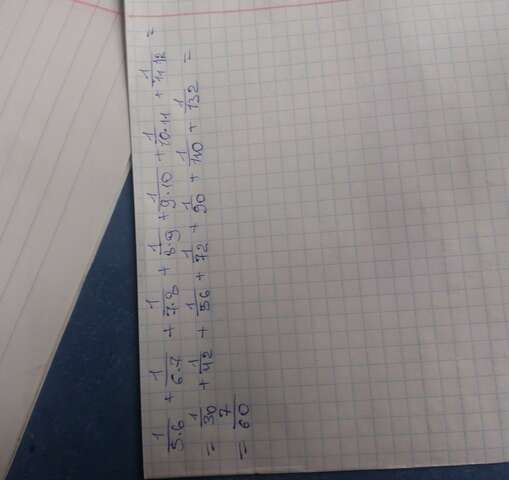 1/5·6 + 1/6·7 + 1/7·8 + 1/8·9 + 1/9·10 + 1/10·11 + 1/11·12 =
= 1/30 + 1/42 + 1/56 + 1/72 + 1/90 + 1/110 + 1/132 =
= 7/60